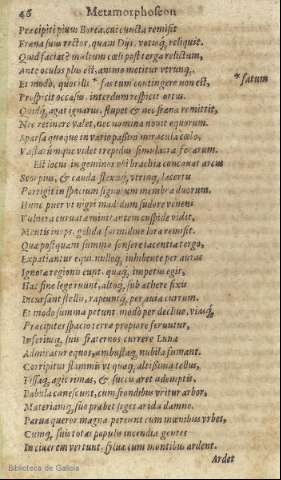 46 Metamorphoseon
Præcipiti pium Borea, cui cuncta remisit
Frena suus rector, quam Dijs, votisq, reliquit.
Quid faciat? multum cœli post terga relictum,
Ante oculos plus est, animo metitur vtrunq,.
Et modò, quos illi * factum contingere non est,
* fatum
Prospicit occasus, interdum respicit ortus.
Quidq, agat ignarus, stupet & nec frena remittit,
Nec retinere valet, nec nomina nouit equorum.
Sparsa quoque in vario passim miracula cœlo,
Vastarumque videt trepidus simulacra ferarum.
Est locus in geminos vbi brachia concauat arcus
Scorpius, & cauda flexisq, vtrinq, lacertis
Porrigit in spacium signorum membra duorum.
Hunc puer vt nigri madidum sudore veneni
Vulnera curuata minitantem cuspide vidit,
Mentis inops, gelida formidine lora remisit.
Quæ postquam summo sensere iacentia tergo,
Expatiantur equi. nulloq, inhibente per auras
Ignotæ regionis eunt. quaq, impetus egit,
Hac sine lege ruunt, altoq, sub æthere fixis
Incursant stellis, rapiuntq, per auia currum.
Et modò summa petunt modò per decliue, viasq,
Præcipites spacio terra propiore feruntur,
Inferiusq, suis fraternos currere Luna
Admiratur equos, ambustaq, nubila fumant.
Corripitur flammis vt quæq, altissima tellus,
Fissaq, agit rimas, & succis aret ademptis.
Pabula canescunt, cum frondibus vritur arbor,
Materiamq, suo præbet seges arida damno.
Parua queror. magna pereunt cum mœnibus vrbes,
Cumq, suis totas populis incendia gentes
In cinerem vertunt. syluæ cum montibus ardent.
Ardet
Biblioteca de Galicia